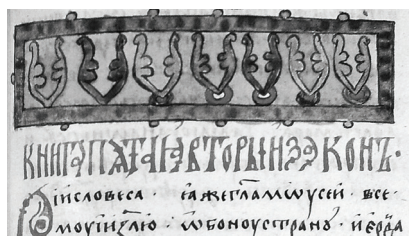 КНИГА ПѦТАꙖ ВТОРЫИ ЗАКОНЪ·
Сїи словеса · ꙗже гл҃а мѡусеи · все
моу іи҃злю · ѡбоноу странꙋ · іерда